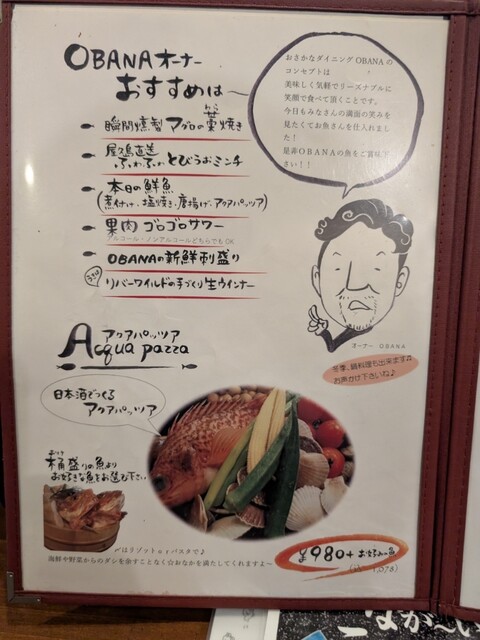 OBANAオーナー
おすすめは〜
瞬間燻製 マグロの藁焼き
わら
屋久島直送
ふわふわ とびうおミンチ
本日の鮮魚
(煮付け、塩焼き、唐揚げ、アクアパッツア)
果肉 ゴロゴロサワー
アルコール・ノンアルコールどちらでもOK
OBANAの新鮮刺盛り
リバーワイルドの手づくり生ウインナー
おさかなダイニング OBANA の
コンセプトは
美味しく気軽でリーズナブルに
笑顔で食べて頂くことです。
今日もみなさんの満面の笑みを
見たくてお魚さんを仕入れました!
是非OBANAの魚をご賞味下さい!!
オーナー OBANA
冬季、鍋料理も出来ます♫
お声がけ下さいね♪
アクアパッツア
Acqua pazza
日本酒でつくる
アクアパッツア
おけ
桶盛りの魚より
お好きな魚をお選び下さい
〆はリゾット or パスタで♪
海鮮や野菜からのダシを余すことなく☆おなかを満たしてくれますよ〜
¥980+ お好みの魚